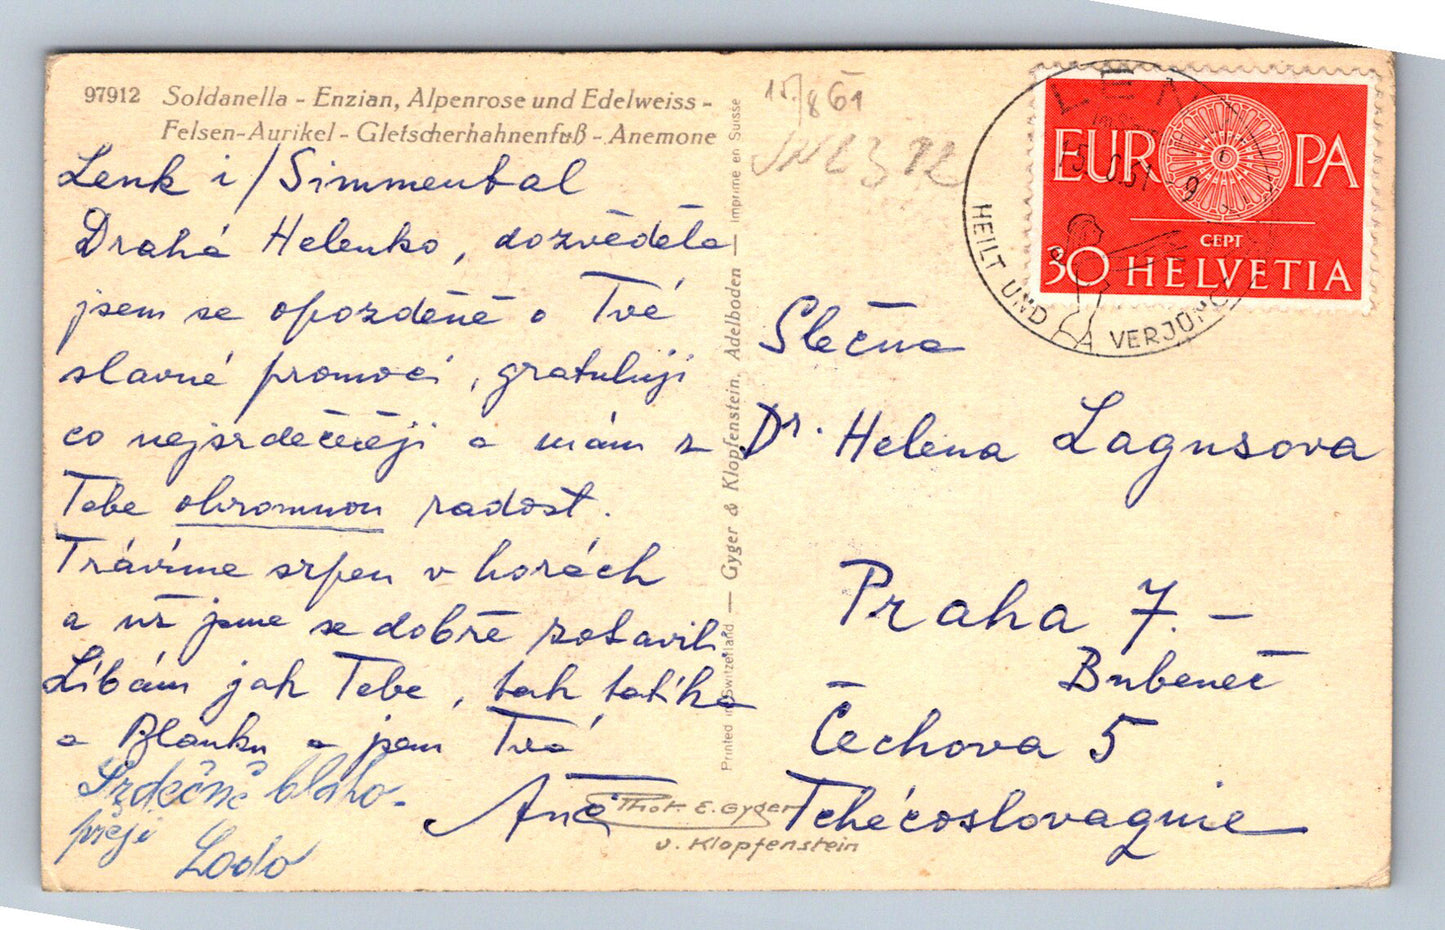 97912 Soldanella - Enzian, Alpenrose und Edelweiss -
Felsen-Aurikel - Gletscherhahnenfuß - Anemone
Lenk i/Simmental
Drahá Helenko, dozvěděla
jsem se opozděně o Tvé
slavné promoci, gratuluji
co nejsrdečněji a mám z
Tebe ohromnou radost.
Trávíme srpen v horách
a už jsme se dobře zotavili
Líbám jak Tebe, tak tatíka
a Blanku a jsem Tvá
Anča
Srdečně blaho-
přeji
Lodo
Printed in Switzerland — Gyger & Klopfenstein, Adelboden — Imprimé en Suisse
15/8 61
LENK
9
HEILT UND VERJÜNGT
EUROPA
CEPT
30 HELVETIA
Slečna
Dr. Helena Lagusova
Praha 7. -
Bubeneč
Čechova 5
Tchécoslovaquie
Phot. E. Gyger
u. Klopfenstein